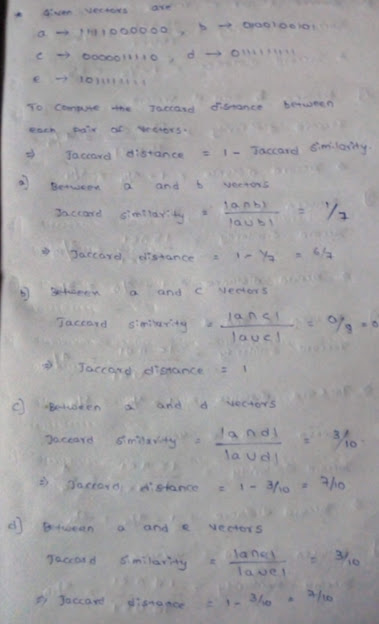 * Given vectors are
a → 1111000000, b → 0100100101
c → 0000011110, d → 0111111111
e → 1011111111
To Compute the Jaccard distance between
each pair of vectors.
⇒ Jaccard distance = 1 - Jaccard similarity.
a) Between a and b vectors
Jaccard similarity = |a∩b| / |a∪b| = 1/7
⇒ Jaccard distance = 1 - 1/7 = 6/7
b) Between a and c vectors
Jaccard similarity = |a∩c| / |a∪c| = 0/8 = 0
⇒ Jaccard distance = 1
c) Between a and d vectors
Jaccard similarity = |a∩d| / |a∪d| = 3/10
⇒ Jaccard distance = 1 - 3/10 = 7/10
d) Between a and e vectors
Jaccard similarity = |a∩e| / |a∪e| = 3/10
⇒ Jaccard distance = 1 - 3/10 = 7/10